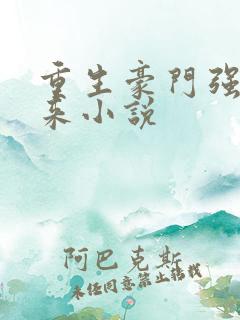 重生豪門强
来小說
阿巴克斯
未经同意禁止转载